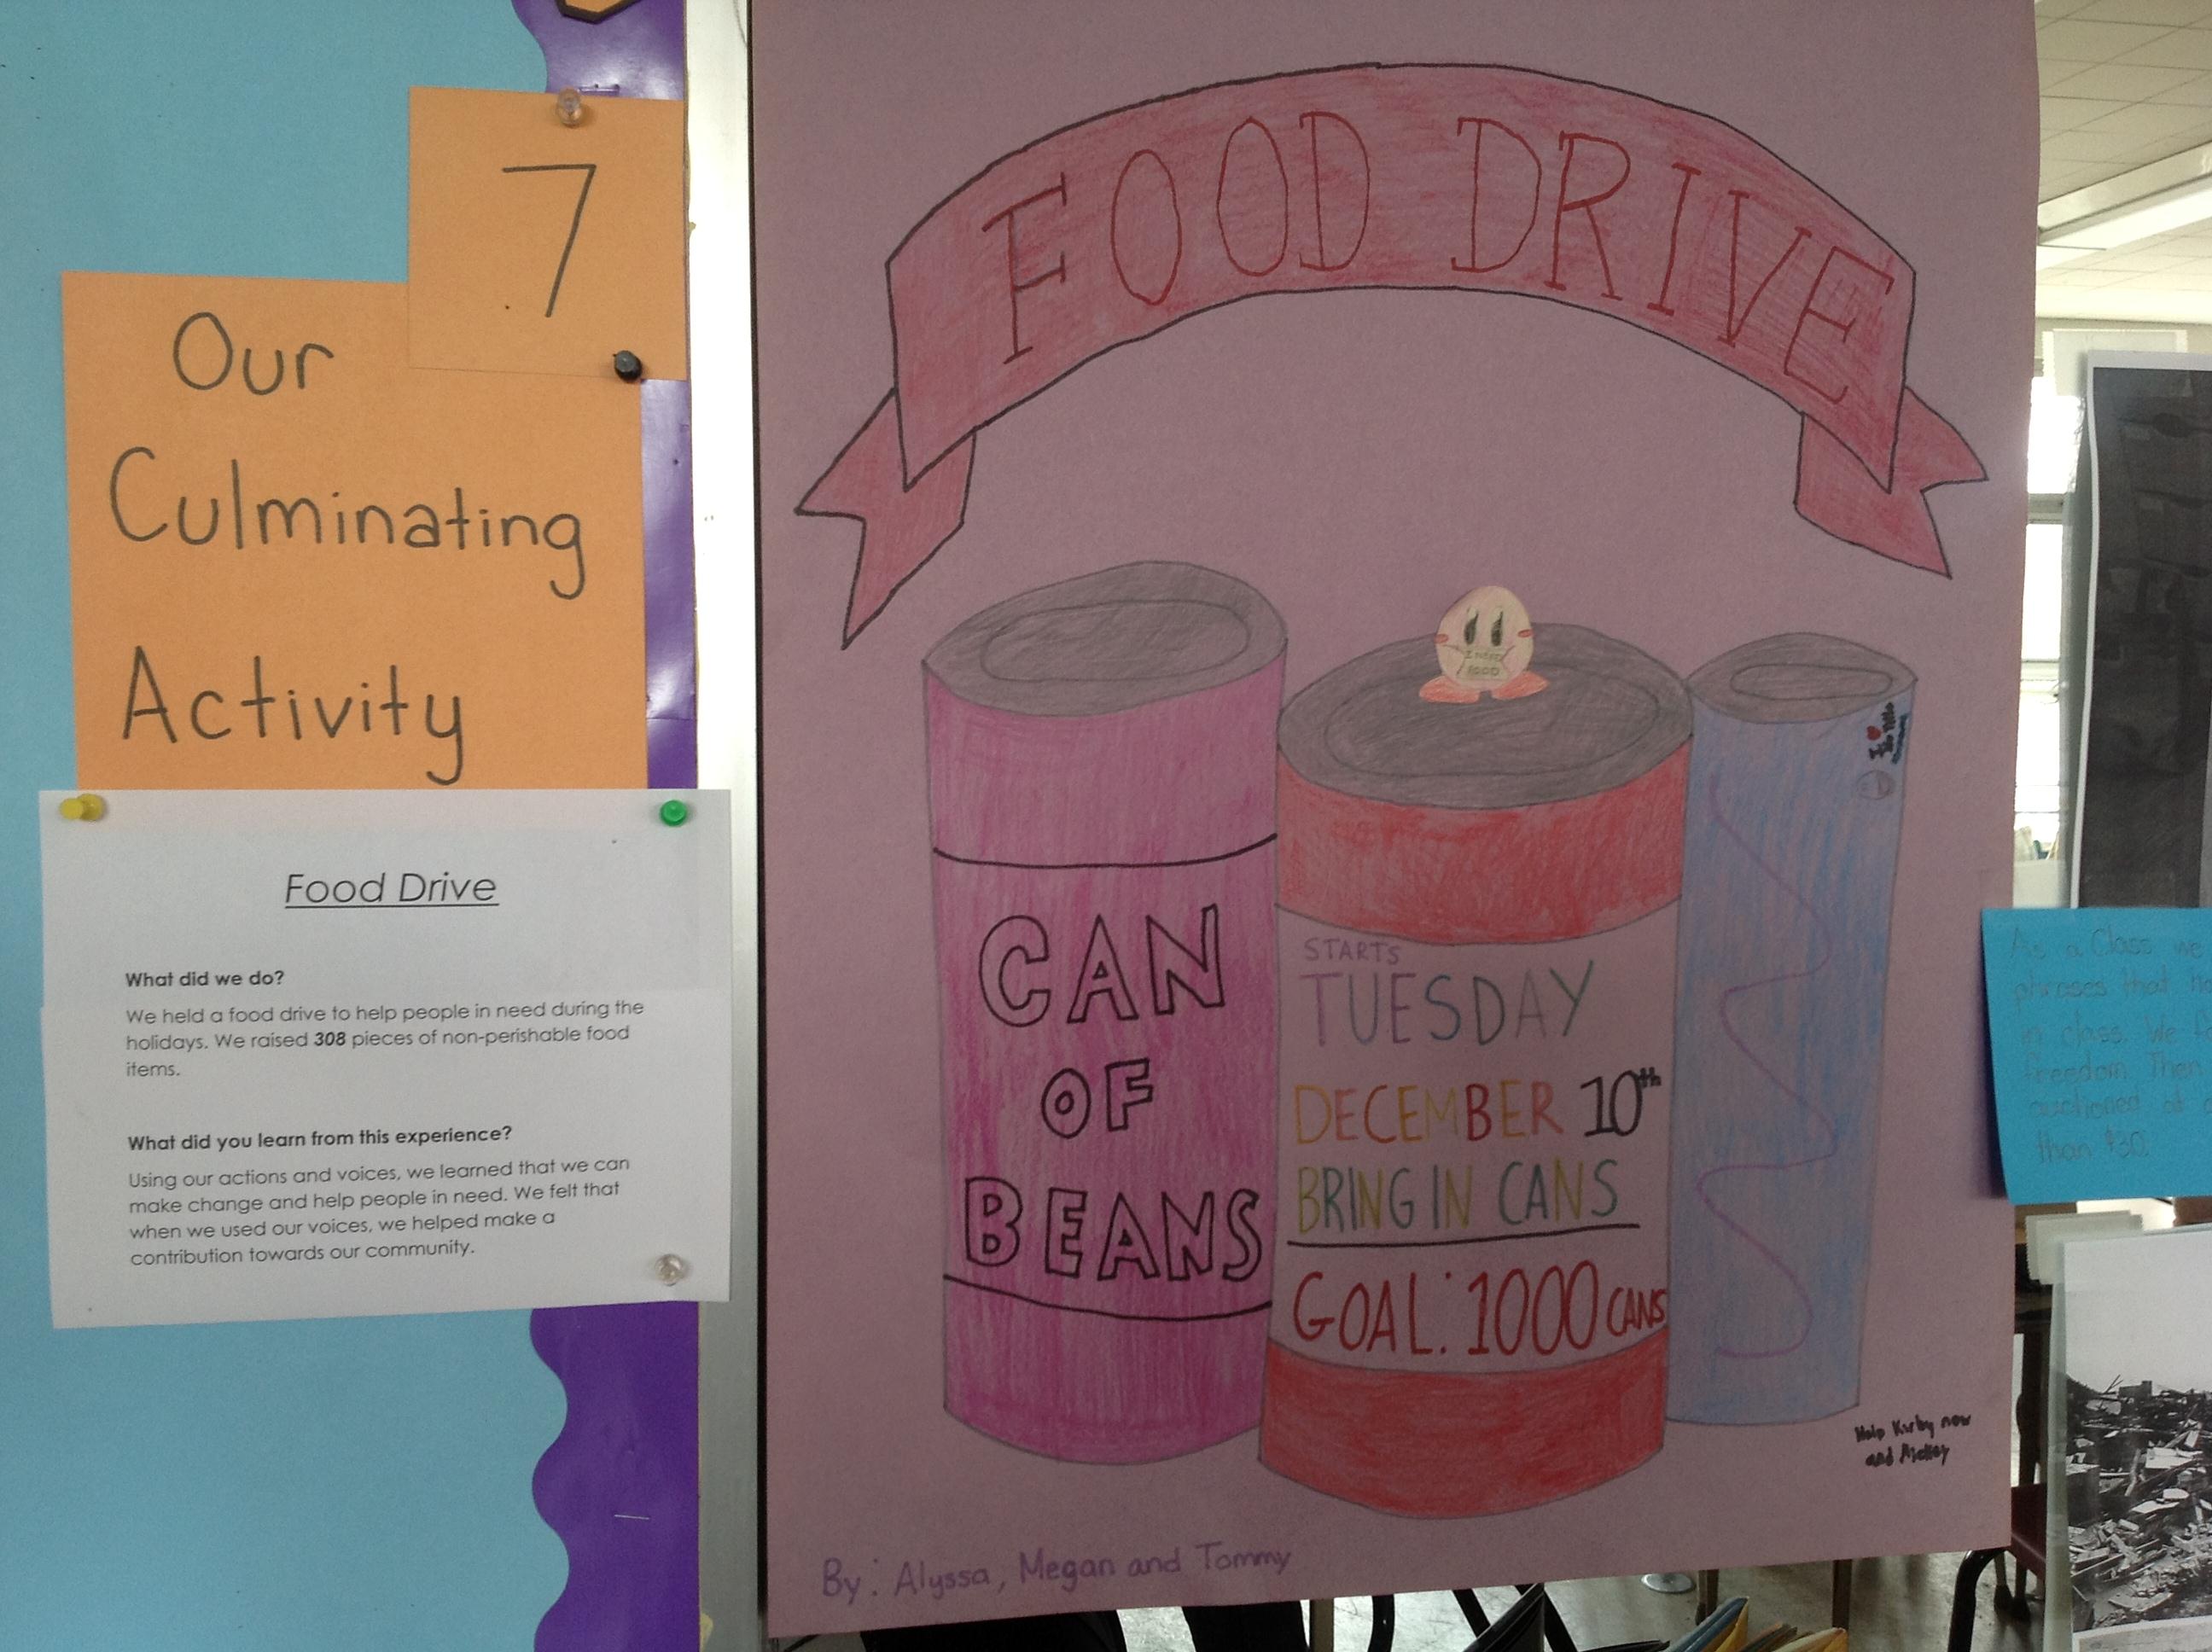 7
Our
Culminating
Activity
Food Drive
What did we do?
We held a food drive to help people in need during the
holidays. We raised 308 pieces of non-perishable food
items.
What did you learn from this experience?
Using our actions and voices, we learned that we can
make change and help people in need. We felt that
when we used our voices, we helped make a
contribution towards our community.
FOOD DRIVE
I NEED
FOOD
CAN
OF
BEANS
STARTS
TUESDAY
DECEMBER 10th
BRING IN CANS
GOAL: 1000 CANS
I
Help Kirby now
and
By: Alyssa, Megan and Tommy
As a Class we
phrases that
in class. We
Freedom. Then
auctioned at
than $30.